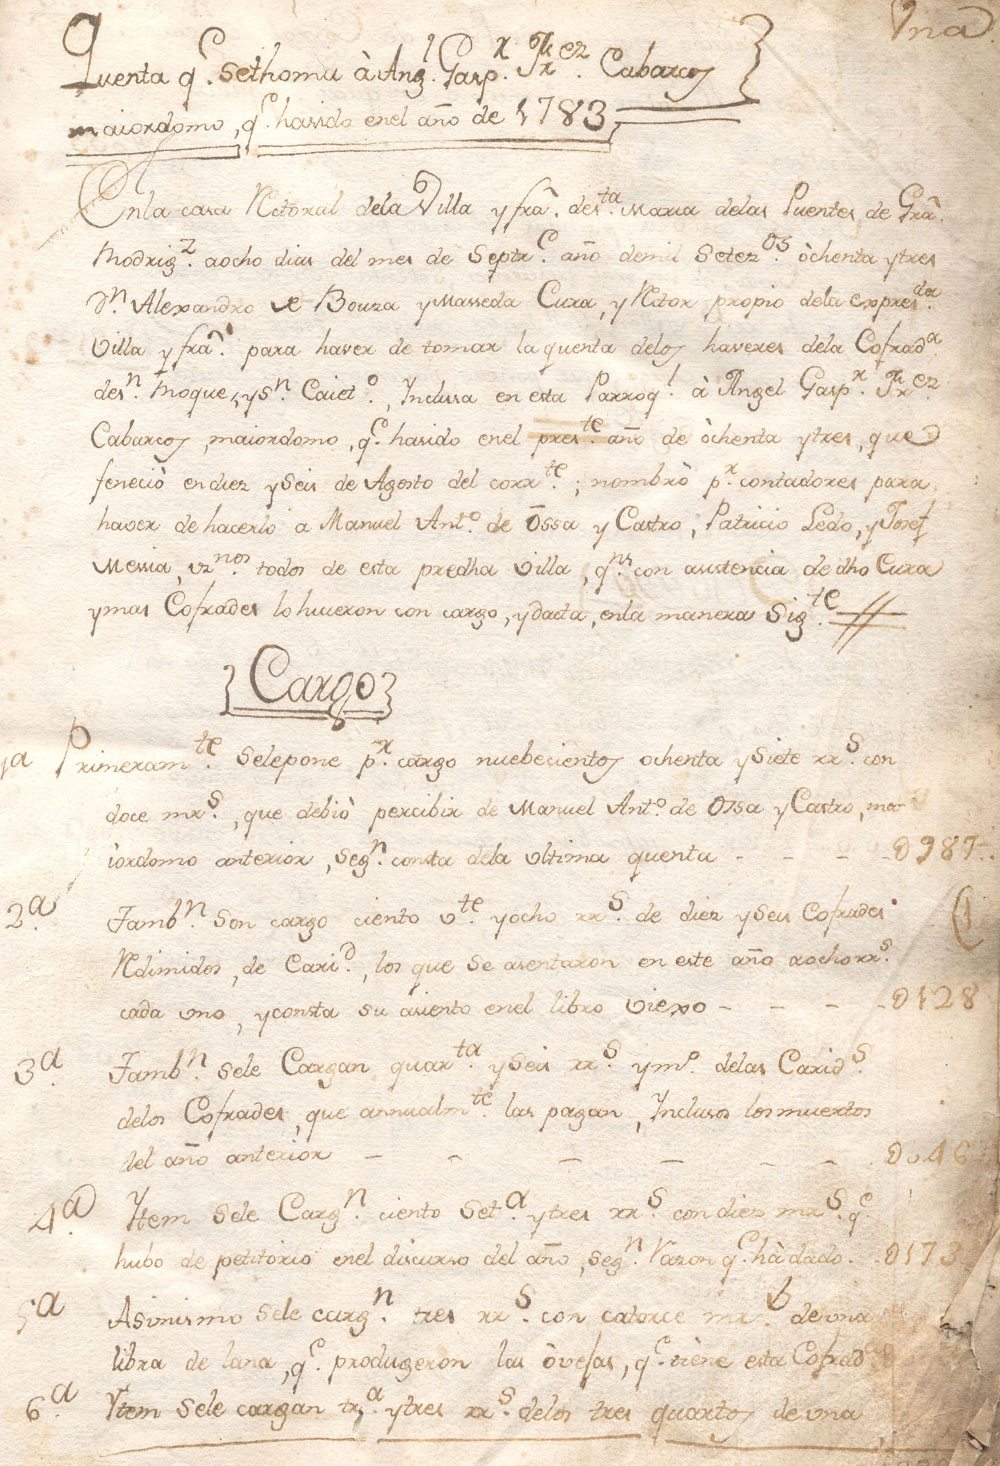 Vna
Quenta q.e sethomu à Ang.l Gasp.r Frz.ez Cabarcos
maiordomo, q.e hasido enel año de 1783
Enla casa Rectoral dela Villa y fra.^ de s.ta Maria delas Puentes de Grã.
Rodrig.z aocho dias del mes de Septr.e año demil Setez.os òchenta ytres
D.n Alexandro de Bouza y Masseda Cura, y Rctor propio dela expres.da
Villa y fra.^ para haver de tomar la quenta delos haveres dela Cofrad.a
de s.n Roque, y s.n Caiet.o, Inclusa en esta Parroq.l à Angel Gasp.r Fr.ez
Cabarcos, maiordomo, q.e hasido enel pres.te año de òchenta ytres, que
feneciò endiez yseis de Agosto del corr.te; nombrò p.r contadores para
haver de hacerlo a Manuel Ant.o de Ossa y Castro, Patricio Ledo, y Josef
Messia, vz.nos todos de esta predha Villa, q.ns con asistencia de dho Cura
ymas Cofrades lo hicieron con cargo, ydacta, enla manera Sig.te
Cargo
1a Primeram.te selepone p.r cargo nuebecientos ochenta ysiete rr.s con
doce mr.s, que debiò percibir de Manuel Ant.o de Ossa y Castro, ma-
iordomo anterior, seg.n consta dela vltima quenta - - - - 0987
2.a Tamb.n son cargo ciento v.te yocho rr.s de diez yseis Cofrades
Redimidos, de Carid.d, los que se asentaron en este año aocho rr.s
cada vno, yconsta su asiento enel libro viexo - - - - 0128
3.a Tamb.n sele Cargan quar.ta yseis rr.s ym.o delas Carid.s
delos Cofrades, que annualm.te las pagan, Inclusos los muertos
del año anterior - - - - - - 0046
4.a Ytem sele Carg.n ciento Set.a ytres rr.s con diez mr.s q.e
hubo de petitorio enel discurso del año, seg.n Razon q.e hà dado. 0173
5a Asimismo sele carg.n tres rr.s con catorce mr.s devna
libra de lana, q.e produgeron las òvejas, q.e tiène esta Cofrad.a
6.a Ytem sele cargan tr.a ytres rr.s delos tres quartos de vna